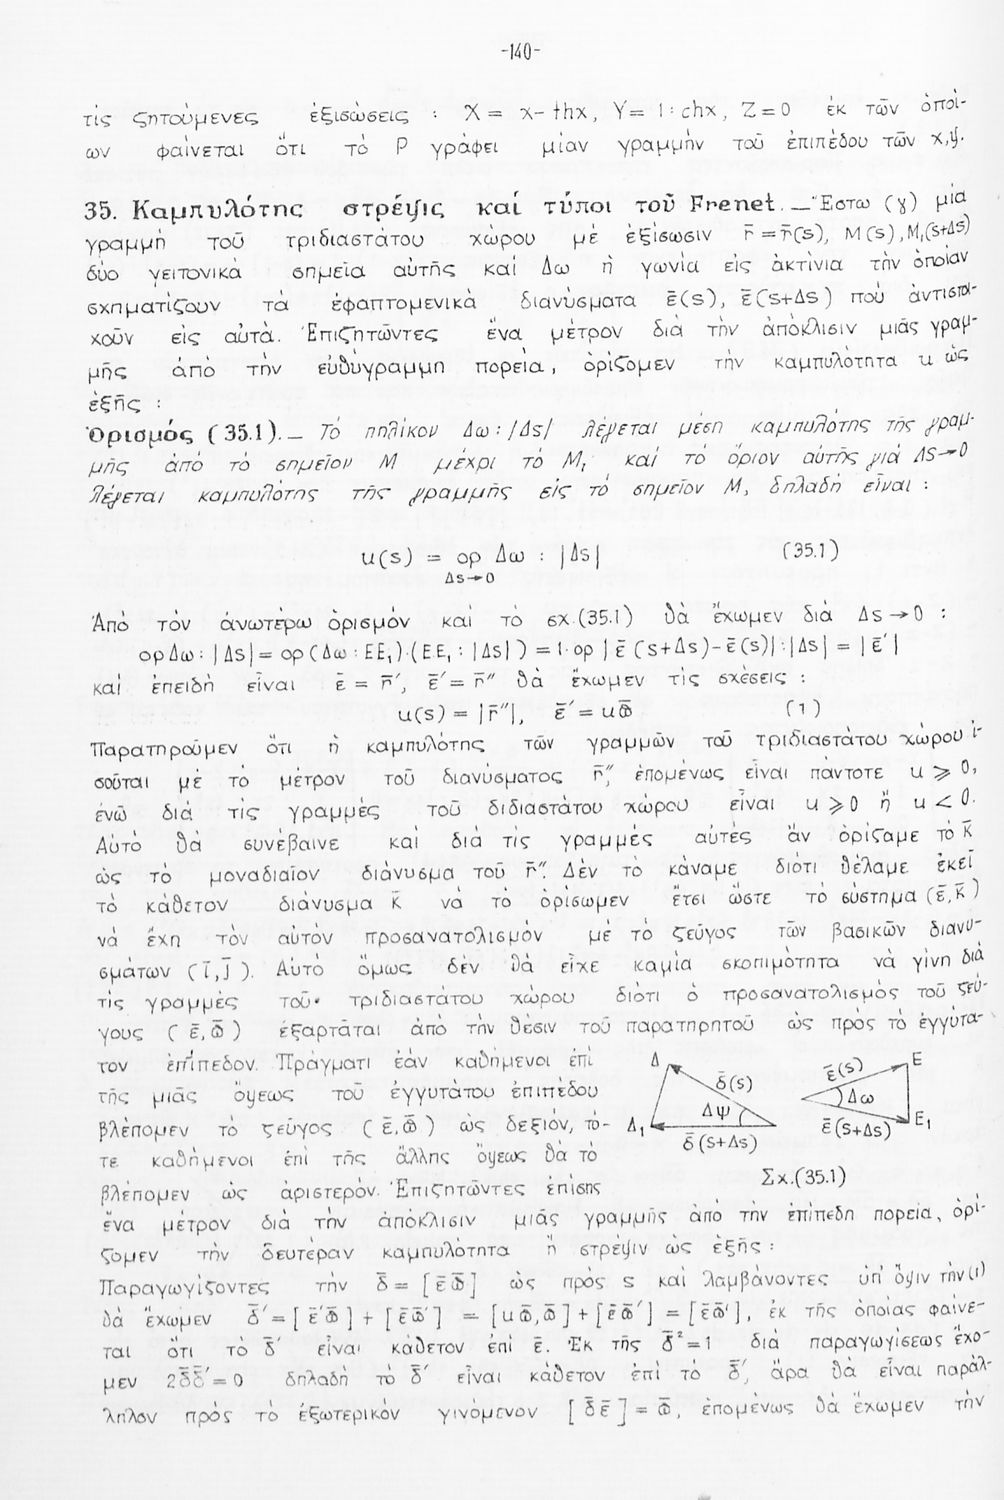 -140-
τίς ζητούμενες ἐξισώσεις : X = x-thx, Y = 1:chx, Z=0 ἐκ τῶν ὁποί-
ων φαίνεται ὅτι τό P γράφει μίαν γραμμήν τοῦ ἐπιπέδου τῶν x,y.
35. Καμπυλότης στρέψις καί τύποι τοῦ Frenet. — Ἔστω (γ) μία
γραμμή τοῦ τριδιαστάτου χώρου μέ ἐξίσωσιν r̄ = r̄(s), M(s), M₁(s+Δs)
δύο γειτονικά σημεῖα αὐτῆς καί Δω ἡ γωνία εἰς ἀκτίνια τήν ὁποίαν
σχηματίζουν τά ἐφαπτομενικά διανύσματα ε̄(s), ε̄(s+Δs) πού ἀντιστοι-
χοῦν εἰς αὐτά. Ἐπιζητῶντες ἕνα μέτρον διά τήν ἀπόκλισιν μιᾶς γραμ-
μῆς ἀπό τήν εὐθύγραμμη πορεία, ὁρίζομεν τήν καμπυλότητα u ὡς
ἐξῆς :
Ὁρισμός (35.1). — Τό πηλίκον Δω:|Δs| λέγεται μέση καμπυλότης τῆς γραμ-
μῆς ἀπό τό σημεῖον M μέχρι τό M₁ καί τό ὅριον αὐτῆς γιά Δs→0
λέγεται καμπυλότης τῆς γραμμῆς εἰς τό σημεῖον M, δηλαδή εἶναι :
u(s) = ορ Δω : |Δs| (35.1)
Δs→0
Ἀπό τόν ἀνωτέρω ὁρισμόν καί τό σχ.(35.1) θά ἔχωμεν διά Δs→0 :
ορΔω:|Δs| = ορ(Δω:EE₁)·(EE₁:|Δs|) = 1·ορ|ε̄(s+Δs)-ε̄(s)|:|Δs| = |ε̄′|
καί ἐπειδή εἶναι ε̄ = r̄′, ε̄′ = r̄″ θά ἔχωμεν τίς σχέσεις :
u(s) = |r̄″|, ε̄′ = uω̄ (1)
Παρατηροῦμεν ὅτι ἡ καμπυλότης τῶν γραμμῶν τοῦ τριδιαστάτου χώρου ἰ-
σοῦται μέ τό μέτρον τοῦ διανύσματος r̄″, ἐπομένως εἶναι πάντοτε u ⩾ 0,
ἐνῶ διά τίς γραμμές τοῦ διδιαστάτου χώρου εἶναι u ⩾ 0 ἤ u < 0.
Αὐτό θά συνέβαινε καί διά τίς γραμμές αὐτές ἄν ὁρίζαμε τό κ̄
ὡς τό μοναδιαῖον διάνυσμα τοῦ r̄″. Δέν τό κάναμε διότι θέλαμε ἐκεῖ
τό κάθετον διάνυσμα κ̄ νά τό ὁρίσωμεν ἔτσι ὥστε τό σύστημα (ε̄,κ̄)
νά ἔχη τόν αὐτόν προσανατολισμόν μέ τό ζεῦγος τῶν βασικῶν διανυ-
σμάτων (ī,j̄). Αὐτό ὅμως δέν θά εἶχε καμία σκοπιμότητα νά γίνη διά
τίς γραμμές τοῦ τριδιαστάτου χώρου διότι ὁ προσανατολισμός τοῦ ζεύ-
γους (ε̄,ω̄) ἐξαρτᾶται ἀπό τήν θέσιν τοῦ παρατηρητοῦ ὡς πρός τό ἐγγύτα-
τον ἐπίπεδον. Πράγματι ἐάν καθήμενοι ἐπί
τῆς μιᾶς ὄψεως τοῦ ἐγγυτάτου ἐπιπέδου
βλέπομεν τό ζεῦγος (ε̄,ω̄) ὡς δεξιόν, τό-
τε καθήμενοι ἐπί τῆς ἄλλης ὄψεως θά τό
βλέπομεν ὡς ἀριστερόν. Ἐπιζητῶντες ἐπίσης
Δ δ̄(s) Δψ Δ₁ δ̄(s+Δs)
ε̄(s) E Δω ε̄(s+Δs) E₁
Σχ.(35.1)
ἕνα μέτρον διά τήν ἀπόκλισιν μιᾶς γραμμῆς ἀπό τήν ἐπίπεδη πορεία, ὁρί-
ζομεν τήν δευτέραν καμπυλότητα ἤ στρέψιν ὡς ἐξῆς :
Παραγωγίζοντες τήν δ̄ = [ε̄ω̄] ὡς πρός s καί λαμβάνοντες ὑπ' ὄψιν τήν (1)
θά ἔχωμεν δ̄′ = [ε̄′ω̄] + [ε̄ω̄′] = [uω̄,ω̄] + [ε̄ω̄′] = [ε̄ω̄′], ἐκ τῆς ὁποίας φαίνε-
ται ὅτι τό δ̄′ εἶναι κάθετον ἐπί ε̄. Ἐκ τῆς δ̄²=1 διά παραγωγίσεως ἔχο-
μεν 2δ̄δ̄′=0 δηλαδή τό δ̄′ εἶναι κάθετον ἐπί τό δ̄, ἄρα θά εἶναι παράλ-
ληλον πρός τό ἐξωτερικόν γινόμενον [δ̄ε̄] = ω̄, ἐπομένως θά ἔχωμεν τήν